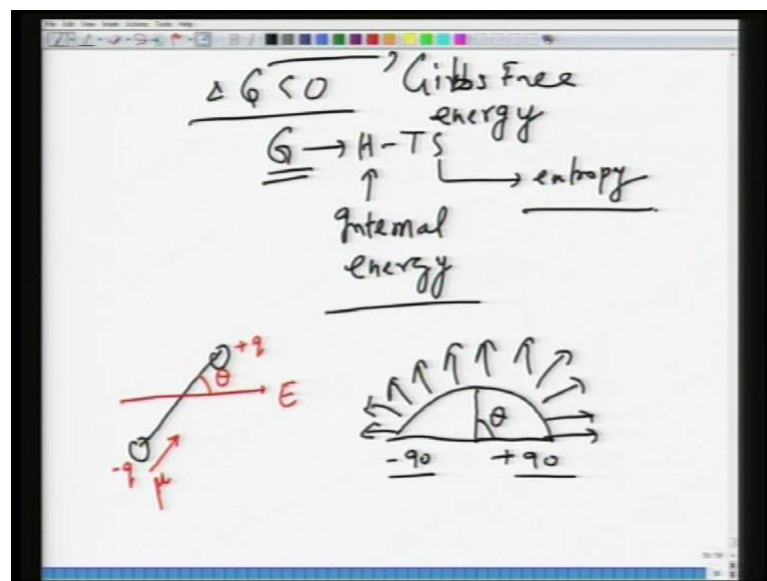 File Edit View Insert Actions Tools Help
Δ G < 0 Gibbs Free
energy
G → H - TS
entropy
Internal
energy
+q
θ
E
-q
μ
θ
-90 +90